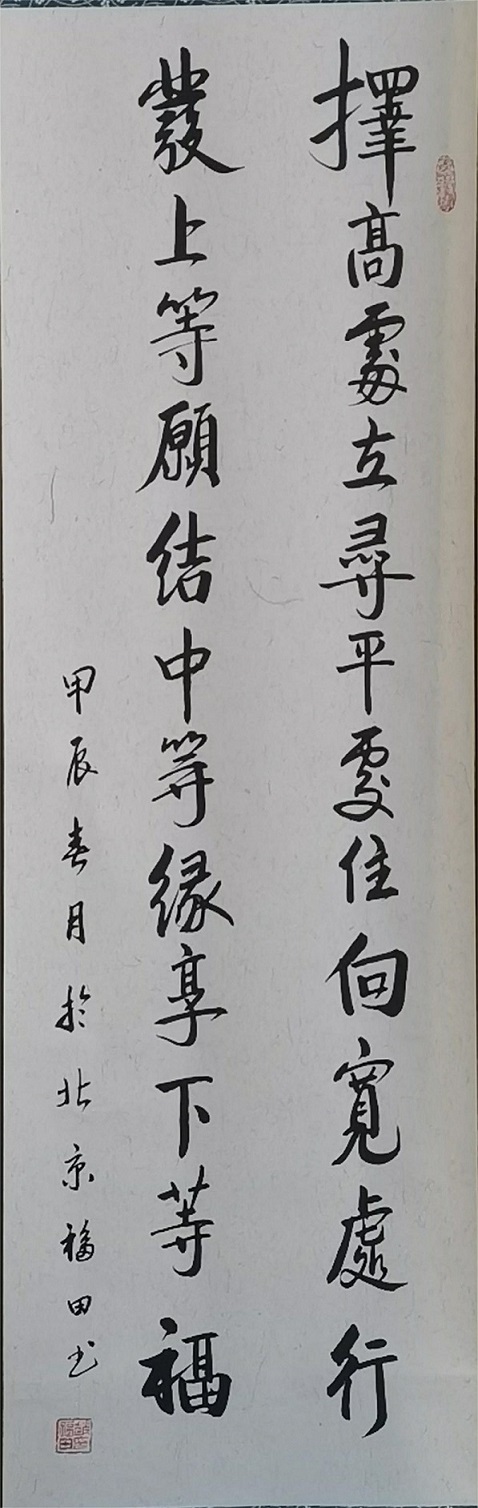 擇高處立尋平處住向寬處行
發上等願結中等緣享下等福
甲辰春月於北京福田书